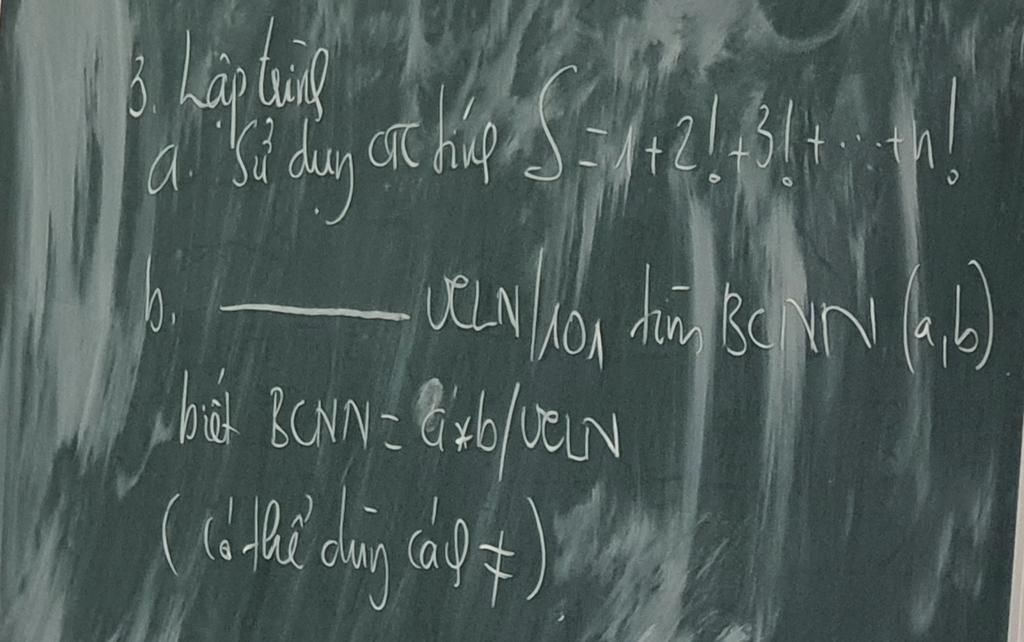 3. Lập trìnφ
a. Sử dụng CTC tínφ S = 1 + 2! + 3! + ... + n!
b. ——— UCLN/101 tìm BCNN (a,b)
biết BCNN = a*b/UCLN
(có thể dùng cáφ ≠)